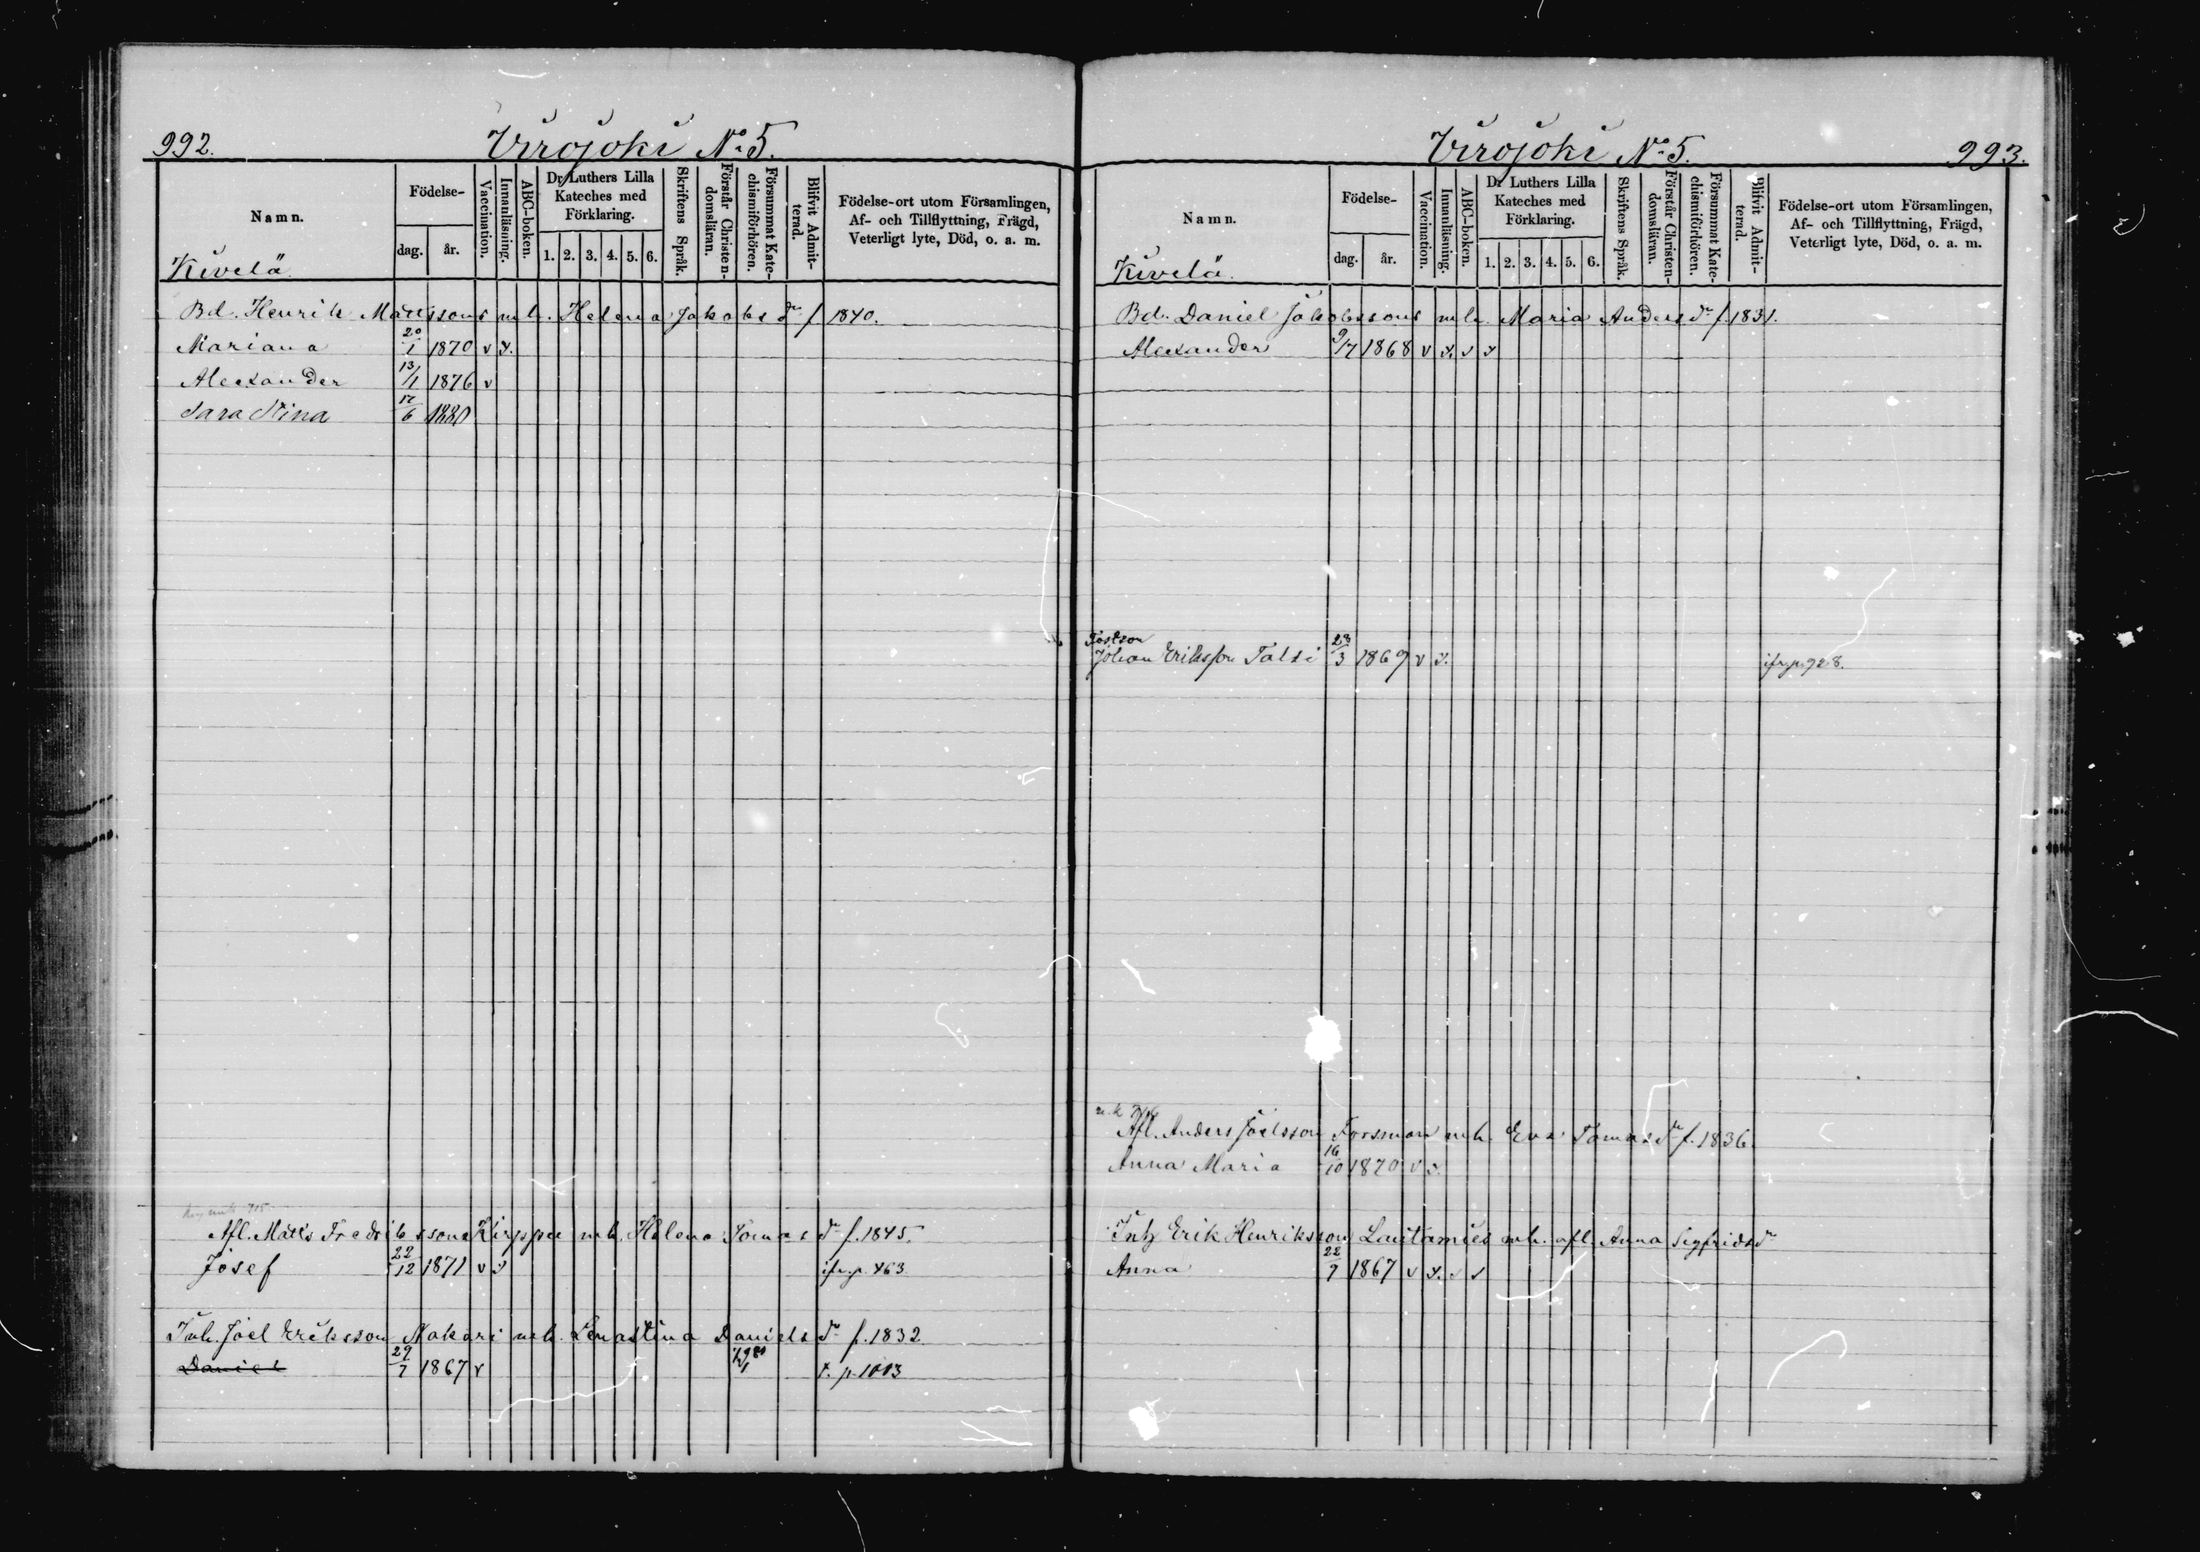 992.
Virojoki No 5.
Namn.
Födelse-
dag.
år.
Vaccination.
Innanläsning.
ABC-boken.
Dr Luthers Lilla
Kateches med
Förklaring.
1. 2. 3. 4. 5. 6.
Skriftens Språk.
Förstår Christen-
domsläran.
Försummat Kate-
chismiförhören.
Blifvit Admit-
terad.
Födelse-ort utom Församlingen,
Af- och Tillflyttning, Frägd,
Veterligt lyte, Död, o. a. m.
Kivelä
Bd. Henrik Mattssons m h. Helena Jakobs dr f 1840.
Mariana 20/1 1870 v x.
Alexander 13/1 1876 v
Sara Stina 17/6 1880
Afl. Matts Fredrikssons Kirppu m h. Helena Tomas dr f. 1845.
Josef 22/12 1871 v x ifr. p. 463.
Inh. Joel Eriksson Nakari m h. Lenastina Daniels dr f. 1832
Daniel 29/7 1867 v t. p. 1003
Virojoki No 5.
993.
Namn.
Födelse-
dag.
år.
Vaccination.
Innanläsning.
ABC-boken.
Dr Luthers Lilla
Kateches med
Förklaring.
1. 2. 3. 4. 5. 6.
Skriftens Språk.
Förstår Christen-
domsläran.
Försummat Kate-
chismiförhören.
Blifvit Admit-
terad.
Födelse-ort utom Församlingen,
Af- och Tillflyttning, Frägd,
Veterligt lyte, Död, o. a. m.
Kivelä.
Bd. Daniel Jakobssons m h. Maria Anders dr f. 1831.
Alexander 9/7 1868 v x. v x
Fostson
Johan Eriksson Talsi 28/3 1869 v x. ifr. p. 928.
Afl. Anders Joelsson Forsman m h. Eva Tomas dr f. 1836.
Anna Maria 16/10 1870 v x.
Inh Erik Henriksson Lautamies m h. afl. Anna Sigfrids dr
Anna 22/7 1867 v x. v v